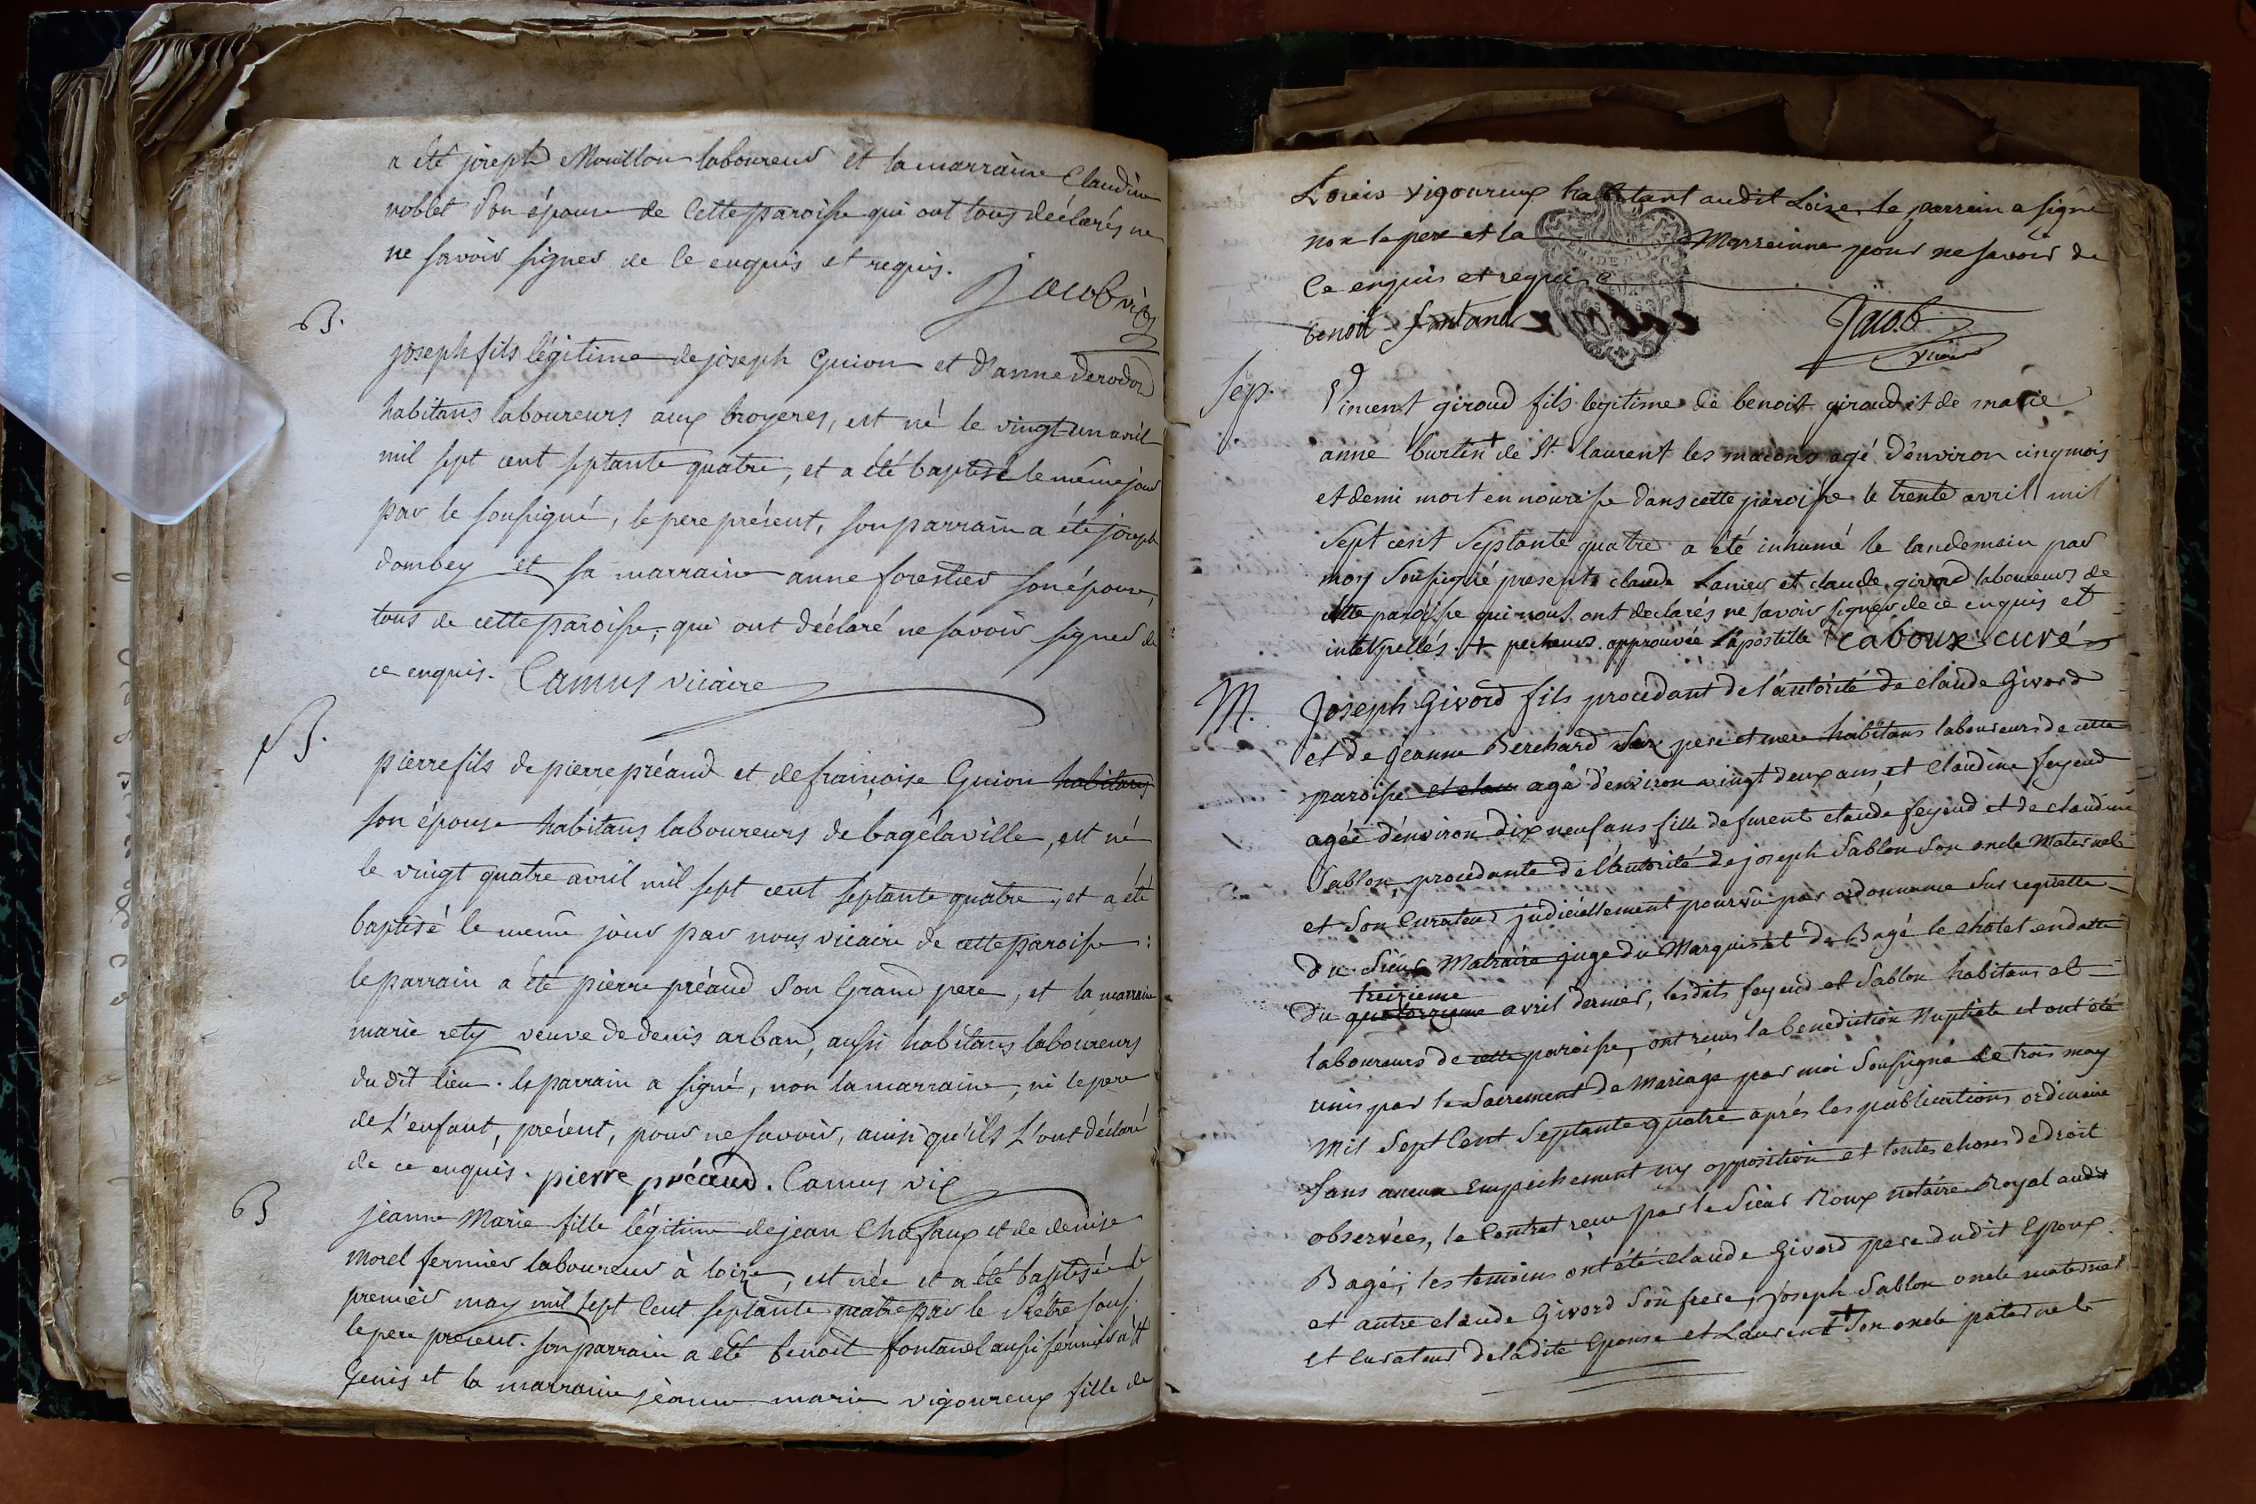 a été joseph Mouillon laboureur et la marraine Claudine
noblet son épouse de cette paroisse qui ont tous déclarés ne
ne savoir signer de ce enquis et requis.
Jacob vic
B.
joseph fils légitime de joseph Guion et d'anne derodon
habitans laboureurs aux broyeres, est né le vingt un avril
mil sept cent septante quatre, et a été baptisé le même jour
par le soussigné, le pere présent, son parrain a été joseph
dombey et sa marraine anne forestier son épouse,
tous de cette paroisse, qui ont déclaré ne savoir signer de
ce enquis. Camus vicaire
B.
pierre fils de pierre préaud et de françoise Guion habitans
son épouse habitans laboureurs de bagélaville, est né
le vingt quatre avril mil sept cent septante quatre, et a été
baptisé le meme jour par nous vicaire de cette paroisse :
le parrain a été pierre préaud son Grand pere, et la marraine
marie rety veuve de denis arband, aussi habitans laboureurs
du dit lieu. le parrain a signé, non la marraine, ni le pere
de L'enfant, présent, pour ne savoir, ainsi qu'ils l'ont déclaré
de ce enquis. pierre préaud. Camus vic
B
jeanne Marie fille légitime de jean Chafaux et de denise
morel fermier laboureur à loize, est née et a été baptisée le
premier may mil sept Cent septante quatre par le Prêtre souss.
le pere présent. son parrain a été benoit fontanel aussi fermier à st
Genis et la marraine jeanne marie vigoureux fille de
Loüis vigoureux habitant audit Loize, le parrein a signé
non le pere et la Marreinne pour ne savoir de
Ce enquis et requis
benoit fontanel
Jacob
vicaire
sep.
Vincent giroud fils legitime de benoit giroud et de marie
anne burtin + de St. laurent les macons agé d'environ cinq mois
et demi mort en nourisse dans cette paroisse le trente avril mil
Sept cent Septante quatre a été inhumé le landemain par
moy Soussigné presents claude Lanier et claude givord laboureurs de
cette paroisse qui nous ont declarés ne savoir signer de ce enquis et
interpellés. + pecheur. approuvée l'apostille Caboux curé
M.
Joseph Givord fils procédant de l'autorité de claude Givord
et de Jeanne Berchard ses pere et mere habitans laboureurs de cette
paroisse et clau agé d'environ vingt deux ans, et Claudine feyeud
agée d'environ dix neuf ans fille de furent claude feyeud et de claudine
Sablon, procedante de l'autorité de joseph Sablon son oncle Maternel
et son Curateur judiciellement pourvû par ordonnance sus requette
du Sieur Matraire juge du Marquisat de Bagé le chatel en datte
treizieme
du quatorzieme avril dernier, lesdits feyeud et Sablon habitans et
laboureurs de cette paroisse, ont reçus la benediction Nuptiale et ont été
unis par le Sacrement de Mariage par moi soussigné le trois may
Mil Sept Cent Septante quatre aprés les publications ordinaire
sans aucun empechement ny opposition et toutes choses de droit
observées, le Contrat reçu par le Sieur Roux notaire Royal audit
Bagé; les temoins ont été claude Givord pere dudit Epoux
et autre claude Givord son frere, joseph Sablon oncle maternel
et curateur de la dite Epouse et Laurent + son oncle paternel